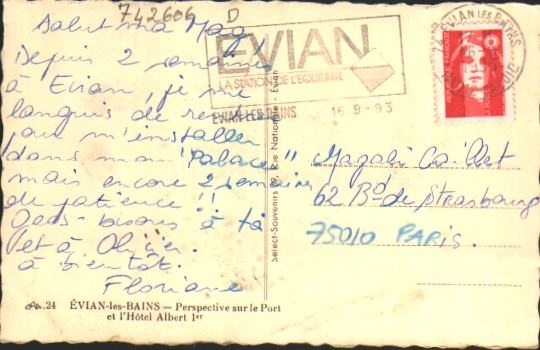 742606 D
Salut ma Mag
Depuis 2 semaines
à Evian, je me
languis de rentrer
pour m'installer
dans mon "Palace"
mais encore 2 semaines
de patience !!
Gros bisous à toi
et à Olivier.
à bientôt.
Floriane
EVIAN
LA STATION DE L'EQUILIBRE
EVIAN LES BAINS 16-9-93
EVIAN LES BAINS
Select-Souvenirs 99, Rue Nationale - Evian
Magali Caillet
62 Bd de Strasbourg
75010 PARIS.
24 ÉVIAN-les-BAINS — Perspective sur le Port
et l'Hôtel Albert 1er